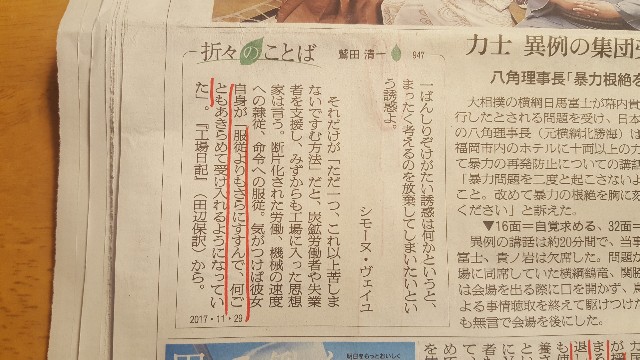 折々のことば
鷲田 清一
947
一ばんしりぞけがたい誘惑は何かというと、
まったく考えるのを放棄してしまいたいとい
う誘惑よ。
シモーヌ・ヴェイユ
それだけが「ただ一つ、これ以上苦しま
ないですむ方法」だと、炭鉱労働者や失業
者を支援し、みずからも工場に入った思想
家は言う。断片化された労働、機械の速度
への隷従、命令への服従。気がつけば彼女
自身が「服従よりもさらにすすんで、何ご
ともあきらめて受け入れるようになってい
た」。『工場日記』(田辺保訳)から。
2017・11・29
力士 異例の集団
八角理事長「暴力根絶を
大相撲の横綱日馬富士が幕内貴
行したとされる問題を受け、日本
の八角理事長(元横綱北勝海)は
福岡市内のホテルに十両以上の力
て暴力の再発防止についての講話
「暴力問題を二度と起こさないよ
こと。改めて暴力の根絶を胸に刻
ください」と訴えた。
▼16面=自覚求める、32面=
異例の講話は約20分間で、当事
富士、貴ノ岩は欠席した。問題が
場に同席していた横綱鶴竜、関脇
は会場を出る際に口を開かず、東
よる事情聴取を終えて駆けつけた
も無言で会場を後にした。
明日をもっとおいしく